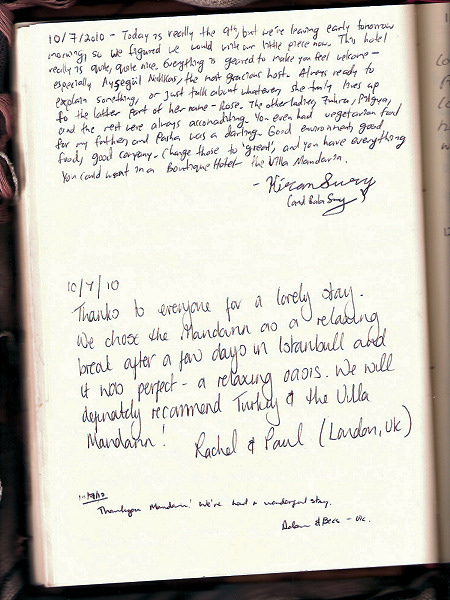 10/7/2010 - Today is really the 9th, but we're leaving early tomorrow
morning, so we figured we would write our little piece now. This hotel
really is quite, quite nice. Everything is geared to make you feel welcome -
especially Ayşegül, the most gracious host. Always ready to
explain something, or just talk about whatever, she truly lives up
to the latter part of her name - Rose. The other ladies, Zuhra,
and the rest were always accomodating. You even had vegetarian food
for my father, and Pasha was a darling. Good environment, good
food, good company. Change those to 'great', and you have everything
You could want in a Boutique Hotel - the Villa Mandarin.
- Kieran
(and Bala)
10/7/10
Thanks to everyone for a lovely stay.
We chose the Mandarin as a relaxing
break after a few days in Istanbull and
it was perfect - a relaxing oasis. We will
definately recommend Turkey & the Villa
Mandarin!
Rachel & Paul (London, UK)
Thankyou Mandarin! We've had a wonderful stay.
Adam & Becs - UK.